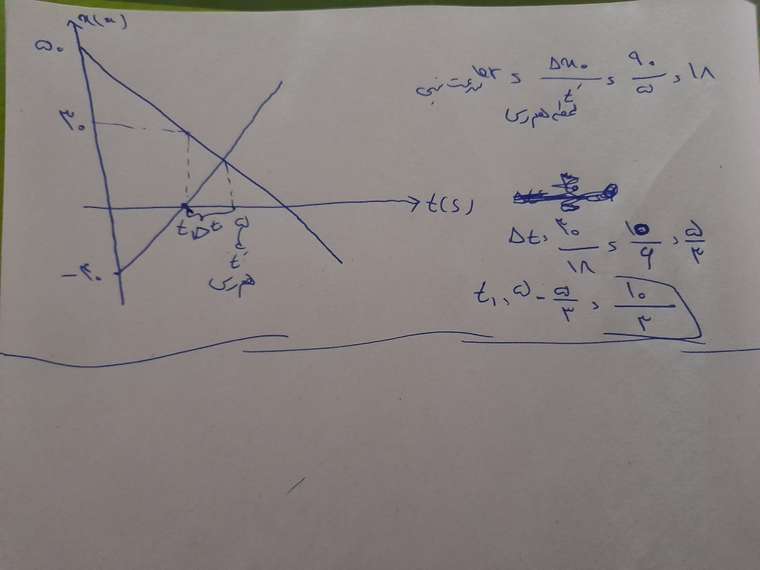 x(m)
۵۰
۳۰
t(s)
t₁ Δt ۵
t'
هم رسی
-۴۰
سرعت نسبی = Δx۰/t' = ۹۰/۵ = ۱۸
لحظه هم رسی
Δt = ۳۰/۱۸ = ۱۰/۶ = ۵/۳
t₁ = ۵ - ۵/۳ = ۱۰/۳